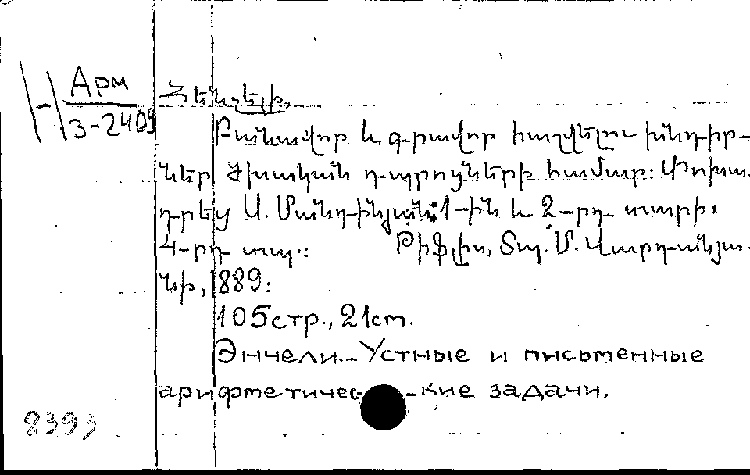 Н Арм
3-2409
Հենչելի,
Բանաւոր և գրավոր հաշվելու խնդիր-
ներ Ծխական դպրոցների համար: Փոխա-
դրեց Ս. Մանդինյան: 1-ին և 2-րդ տարի.
4-րդ տպ.: Թիֆլիս, Տպ. Մ. Վարդանյա-
նի, 1889:
105стр., 21cm.
Энчели.- Устные и письменные
арифметичес-кие задачи.
8393